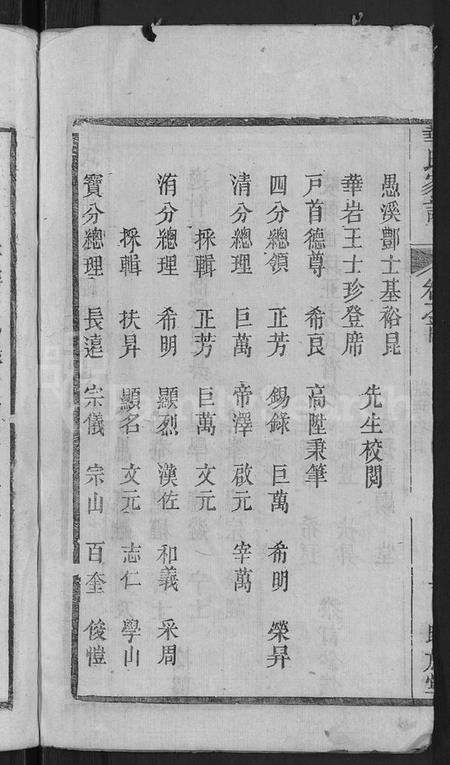 愚溪酆士基裕昆
先生校閱
華岩王士珍登席
戶首德尊 希良 高陞秉筆
四分總領 正芳 錫錄 巨萬 希明 榮昇
清分總理 巨萬 帝澤 啟元 宰萬
採輯 正芳 巨萬 文元
洧分總理 希明 顯烈 漢佐 和義 采周
採輯 扶昇 顯名 文元 志仁 學山
寶分總理 長遠 宗儀 宗山 百奎 後愷